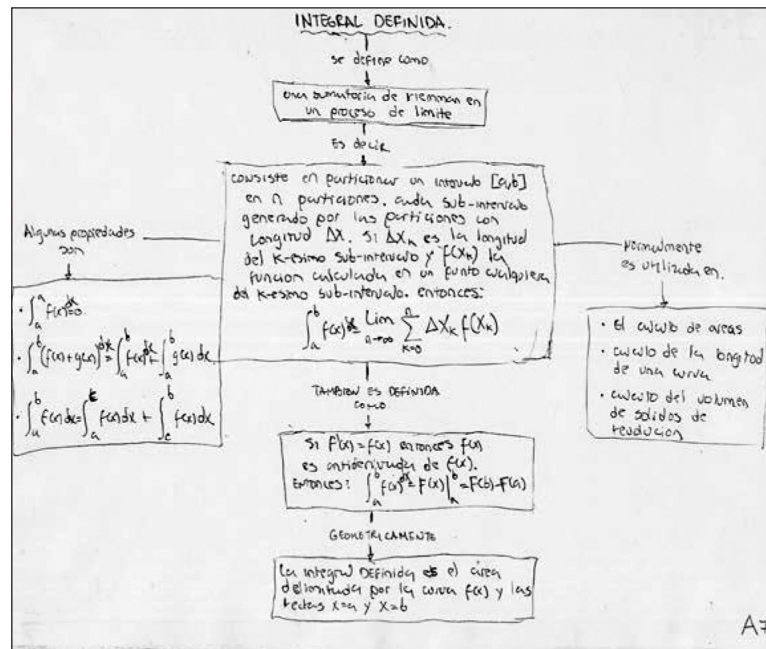 INTEGRAL DEFINIDA.
se define como
una sumatoria de riemman en
un proceso de limite
Es decir
consiste en particionar un intervalo [a,b]
en n particiones. cada sub-intervalo
generado por las particiones con
longitud ΔX. Si ΔX_k es la longitud
del k-esimo sub-intervalo y f(X_k) la
funcion calculada en un punto cualquiera
del k-esimo sub-intervalo. entonces:
∫_a^b f(x)dx = Lim_{n→∞} ∑_{k=0}^n ΔX_k f(X_k)
Algunas propiedades
son
• ∫_a^a f(x)dx=0
• ∫_a^b (f(x)+g(x))dx = ∫_a^b f(x)dx + ∫_a^b g(x)dx
• ∫_a^b f(x)dx = ∫_a^c f(x)dx + ∫_c^b f(x)dx
Normalmente
es utilizada en.
• El calculo de areas
• calculo de la longitud
de una curva
• calculo del volumen
de solidos de
revolucion
TAMBIEN ES DEFINIDA
como
Si F'(x) = f(x) entonces f(x)
es antiderivada de f(x).
ENTONCES: ∫_a^b f(x)dx = F(x)|_a^b = F(b)-F(a)
GEOMETRICAMENTE
La integral DEFINIDA es el área
delimitada por la curva f(x) y las
rectas x=a y x=b
A7